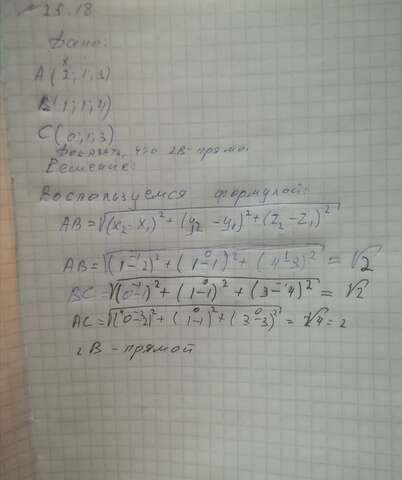 25.18
Дано:
A(2; 1; 3)
B(1; 1; 4)
C(0; 1; 3)
Доказать, что ∠B - прямо.
Решение:
Воспользуемся формулой:
AB=√(x₂-x₁)²+(y₂-y₁)²+(z₂-z₁)²
AB=√(1-2)²+(1-1)²+(4-3)² = √2
BC=√(0-1)²+(1-1)²+(3-4)² = √2
AC=√(0-2)²+(1-1)²+(3-3)² = √4=2
∠B - прямой